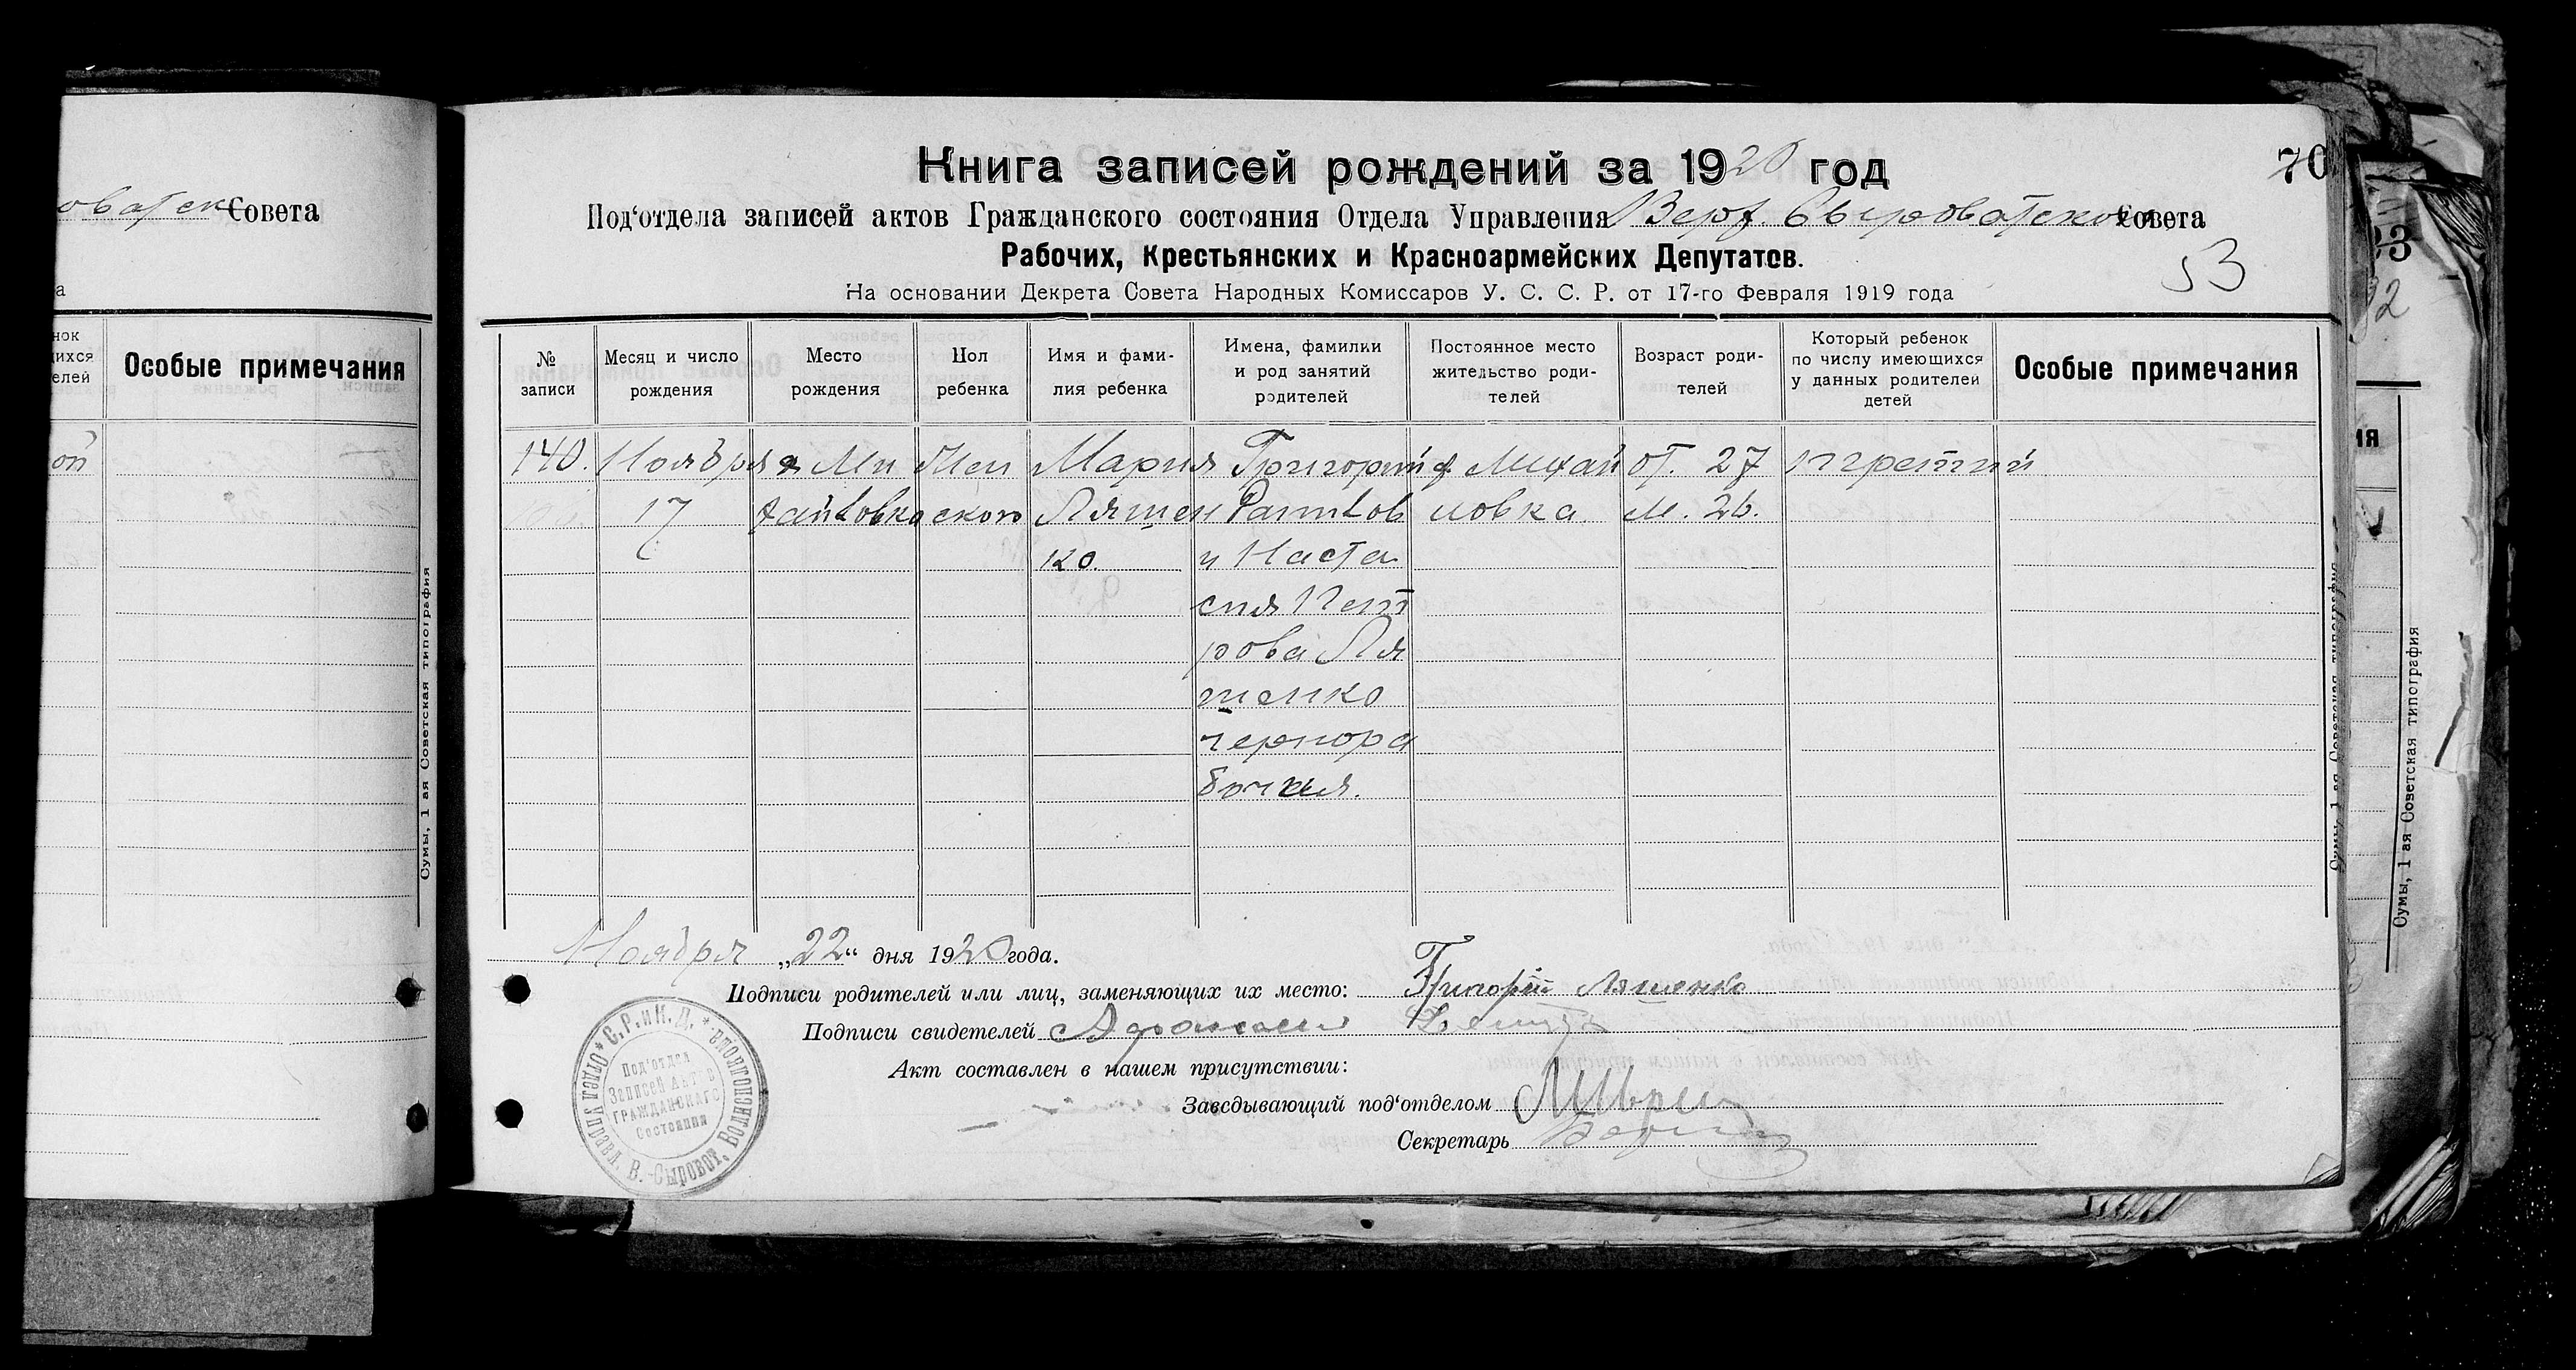 оватск Совета
а
нок
ихся
елей
Особые примечания
ой
Сумы, 1 ая Советская типография
Книга записей рождений за 1920 год
70
Под‘отдела записей актов Гражданского состояния Отдела Управления Верх. Сыроватского Совета
Рабочих, Крестьянских и Красноармейских Депутатов.
53
На основании Декрета Совета Народных Комиссаров У. С. С. Р. от 17-го Февраля 1919 года
№ записи
Месяц и число рождения
Место рождения
Пол ребенка
Имя и фами-
лия ребенка
Имена, фамилии
и род занятий
родителей
Постоянное место
жительство роди-
телей
Возраст роди-
телей
Который ребенок
по числу имеющихся
у данных родителей
детей
Особые примечания
140. Ноября х Ми Жен Мария Григорий х Михай от. 27 Третий
17 хайловка ского Ляшен ловка м. 26.
ко. и Наста
сия Пет
рова Ля
шенко
чернора
бочия.
Ноября „22“ дня 1920 года.
Подписи родителей или лиц, заменяющих их место: Григорій Ляшенко
Подписи свидетелей
Акт составлен в нашем присутствии:
Заведывающий под‘отделом
Секретарь
С.Р. и К.Д. * Отдел Управл. В.-Сыроват. Волисполкома *
Под‘отдел
Записей Актов
Гражданскаго
Состояния
Сумы, 1 ая Советская типография
23
92
ия
Сумы, 1 ая Советская типография